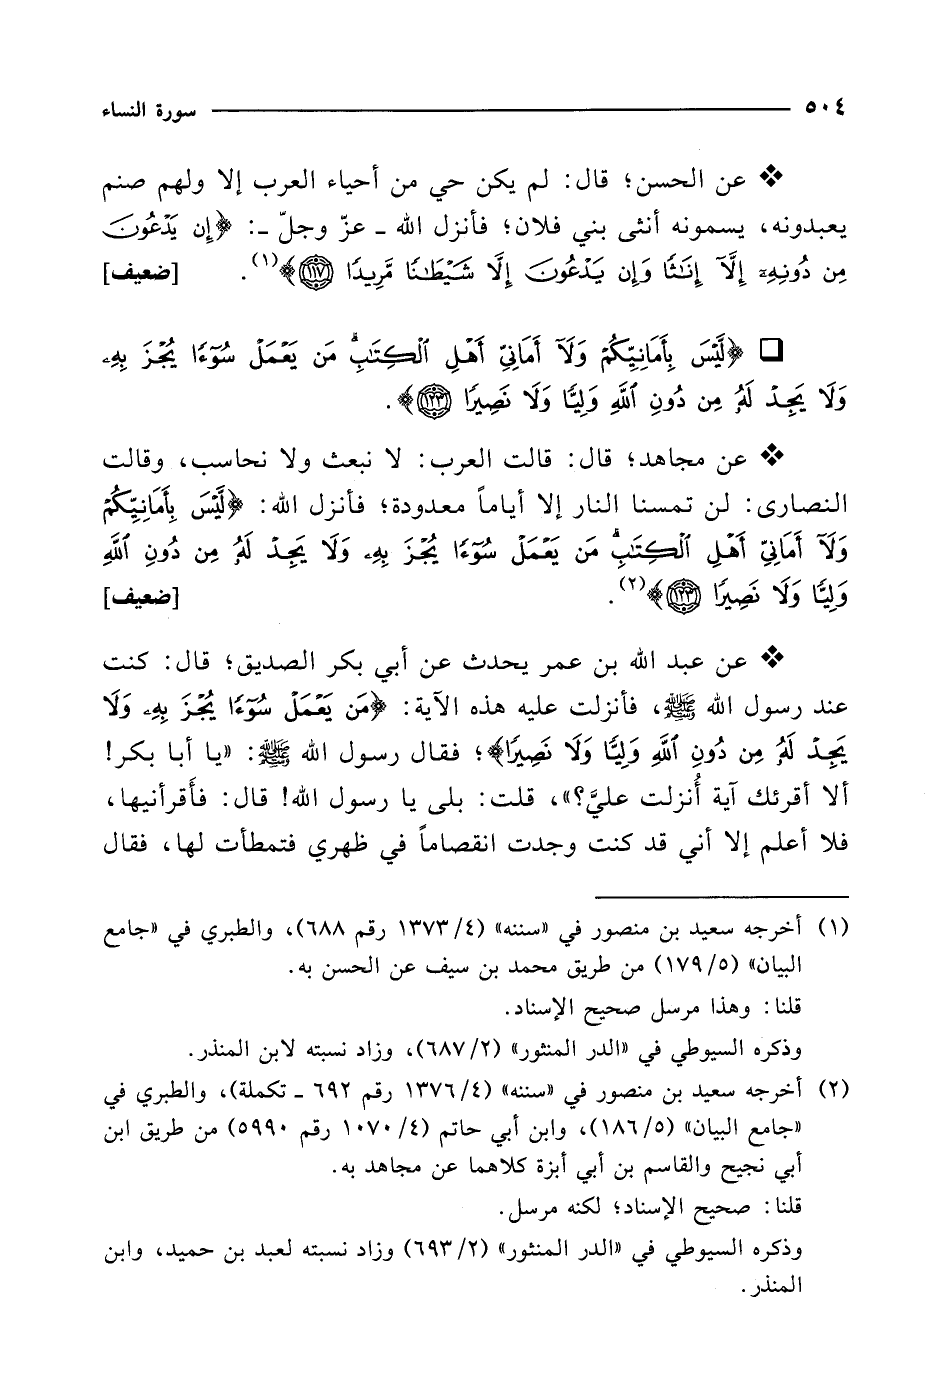 ٥٠٤ سورة النساء
❖ عن الحسن؛ قال: لم يكن حي من أحياء العرب إلا ولهم صنم
يعبدونه، يسمونه أنثى بني فلان؛ فأنزل الله ـ عزّ وجلّ ـ: ﴿إِن يَدْعُونَ
مِن دُونِهِۦٓ إِلَّآ إِنَـٰثًا وَإِن يَدْعُونَ إِلَّا شَيْطَـٰنًا مَّرِيدًا ﴿١١٧﴾﴾(١). [ضعيف]
❏ ﴿لَّيْسَ بِأَمَانِيِّكُمْ وَلَآ أَمَانِيِّ أَهْلِ ٱلْكِتَـٰبِۗ مَن يَعْمَلْ سُوٓءًا يُجْزَ بِهِۦ
وَلَا يَجِدْ لَهُۥ مِن دُونِ ٱللَّهِ وَلِيًّا وَلَا نَصِيرًا ﴿١٢٣﴾﴾.
❖ عن مجاهد؛ قال: قالت العرب: لا نبعث ولا نحاسب، وقالت
النصارى: لن تمسنا النار إلا أياماً معدودة؛ فأنزل الله: ﴿لَّيْسَ بِأَمَانِيِّكُمْ
وَلَآ أَمَانِيِّ أَهْلِ ٱلْكِتَـٰبِۗ مَن يَعْمَلْ سُوٓءًا يُجْزَ بِهِۦ وَلَا يَجِدْ لَهُۥ مِن دُونِ ٱللَّهِ
وَلِيًّا وَلَا نَصِيرًا ﴿١٢٣﴾﴾(٢). [ضعيف]
❖ عن عبد الله بن عمر يحدث عن أبي بكر الصديق؛ قال: كنت
عند رسول الله ﷺ، فأنزلت عليه هذه الآية: ﴿مَن يَعْمَلْ سُوٓءًا يُجْزَ بِهِۦ وَلَا
يَجِدْ لَهُۥ مِن دُونِ ٱللَّهِ وَلِيًّا وَلَا نَصِيرًا﴾؛ فقال رسول الله ﷺ: «يا أبا بكر!
ألا أقرئك آية أُنزلت عليَّ؟»، قلت: بلى يا رسول الله! قال: فأَقرأنيها،
فلا أعلم إلا أني قد كنت وجدت انقصاماً في ظهري فتمطأت لها، فقال
(١) أخرجه سعيد بن منصور في «سننه» (٤/ ١٣٧٣ رقم ٦٨٨)، والطبري في «جامع
البيان» (٥/ ١٧٩) من طريق محمد بن سيف عن الحسن به.
قلنا: وهذا مرسل صحيح الإسناد.
وذكره السيوطي في «الدر المنثور» (٢/ ٦٨٧)، وزاد نسبته لابن المنذر.
(٢) أخرجه سعيد بن منصور في «سننه» (٤/ ١٣٧٦ رقم ٦٩٢ ـ تكملة)، والطبري في
«جامع البيان» (٥/ ١٨٦)، وابن أبي حاتم (٤/ ١٠٧٠ رقم ٥٩٩٠) من طريق ابن
أبي نجيح والقاسم بن أبي أبزة كلاهما عن مجاهد به.
قلنا: صحيح الإسناد؛ لكنه مرسل.
وذكره السيوطي في «الدر المنثور» (٢/ ٦٩٣) وزاد نسبته لعبد بن حميد، وابن
المنذر.